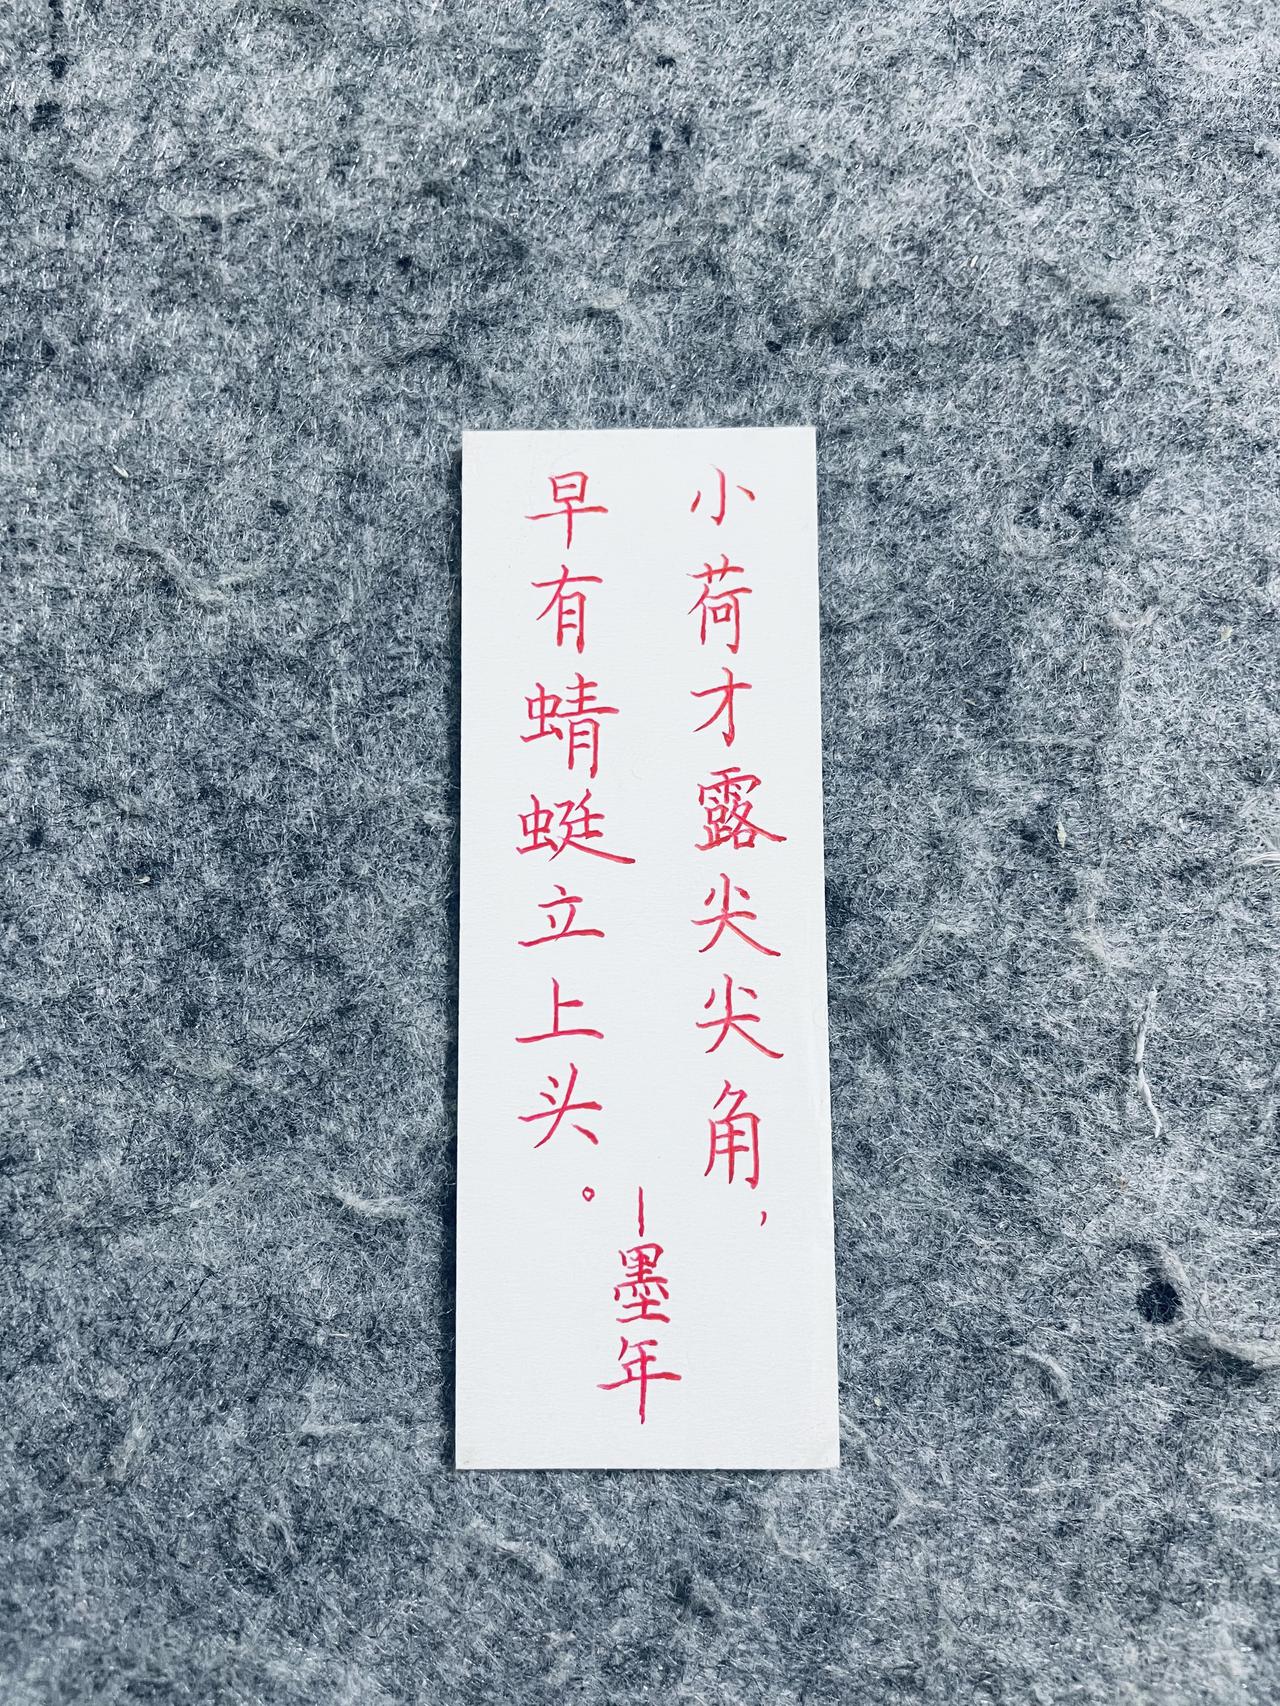 小荷才露尖尖角，
早有蜻蜓立上头。
—墨年